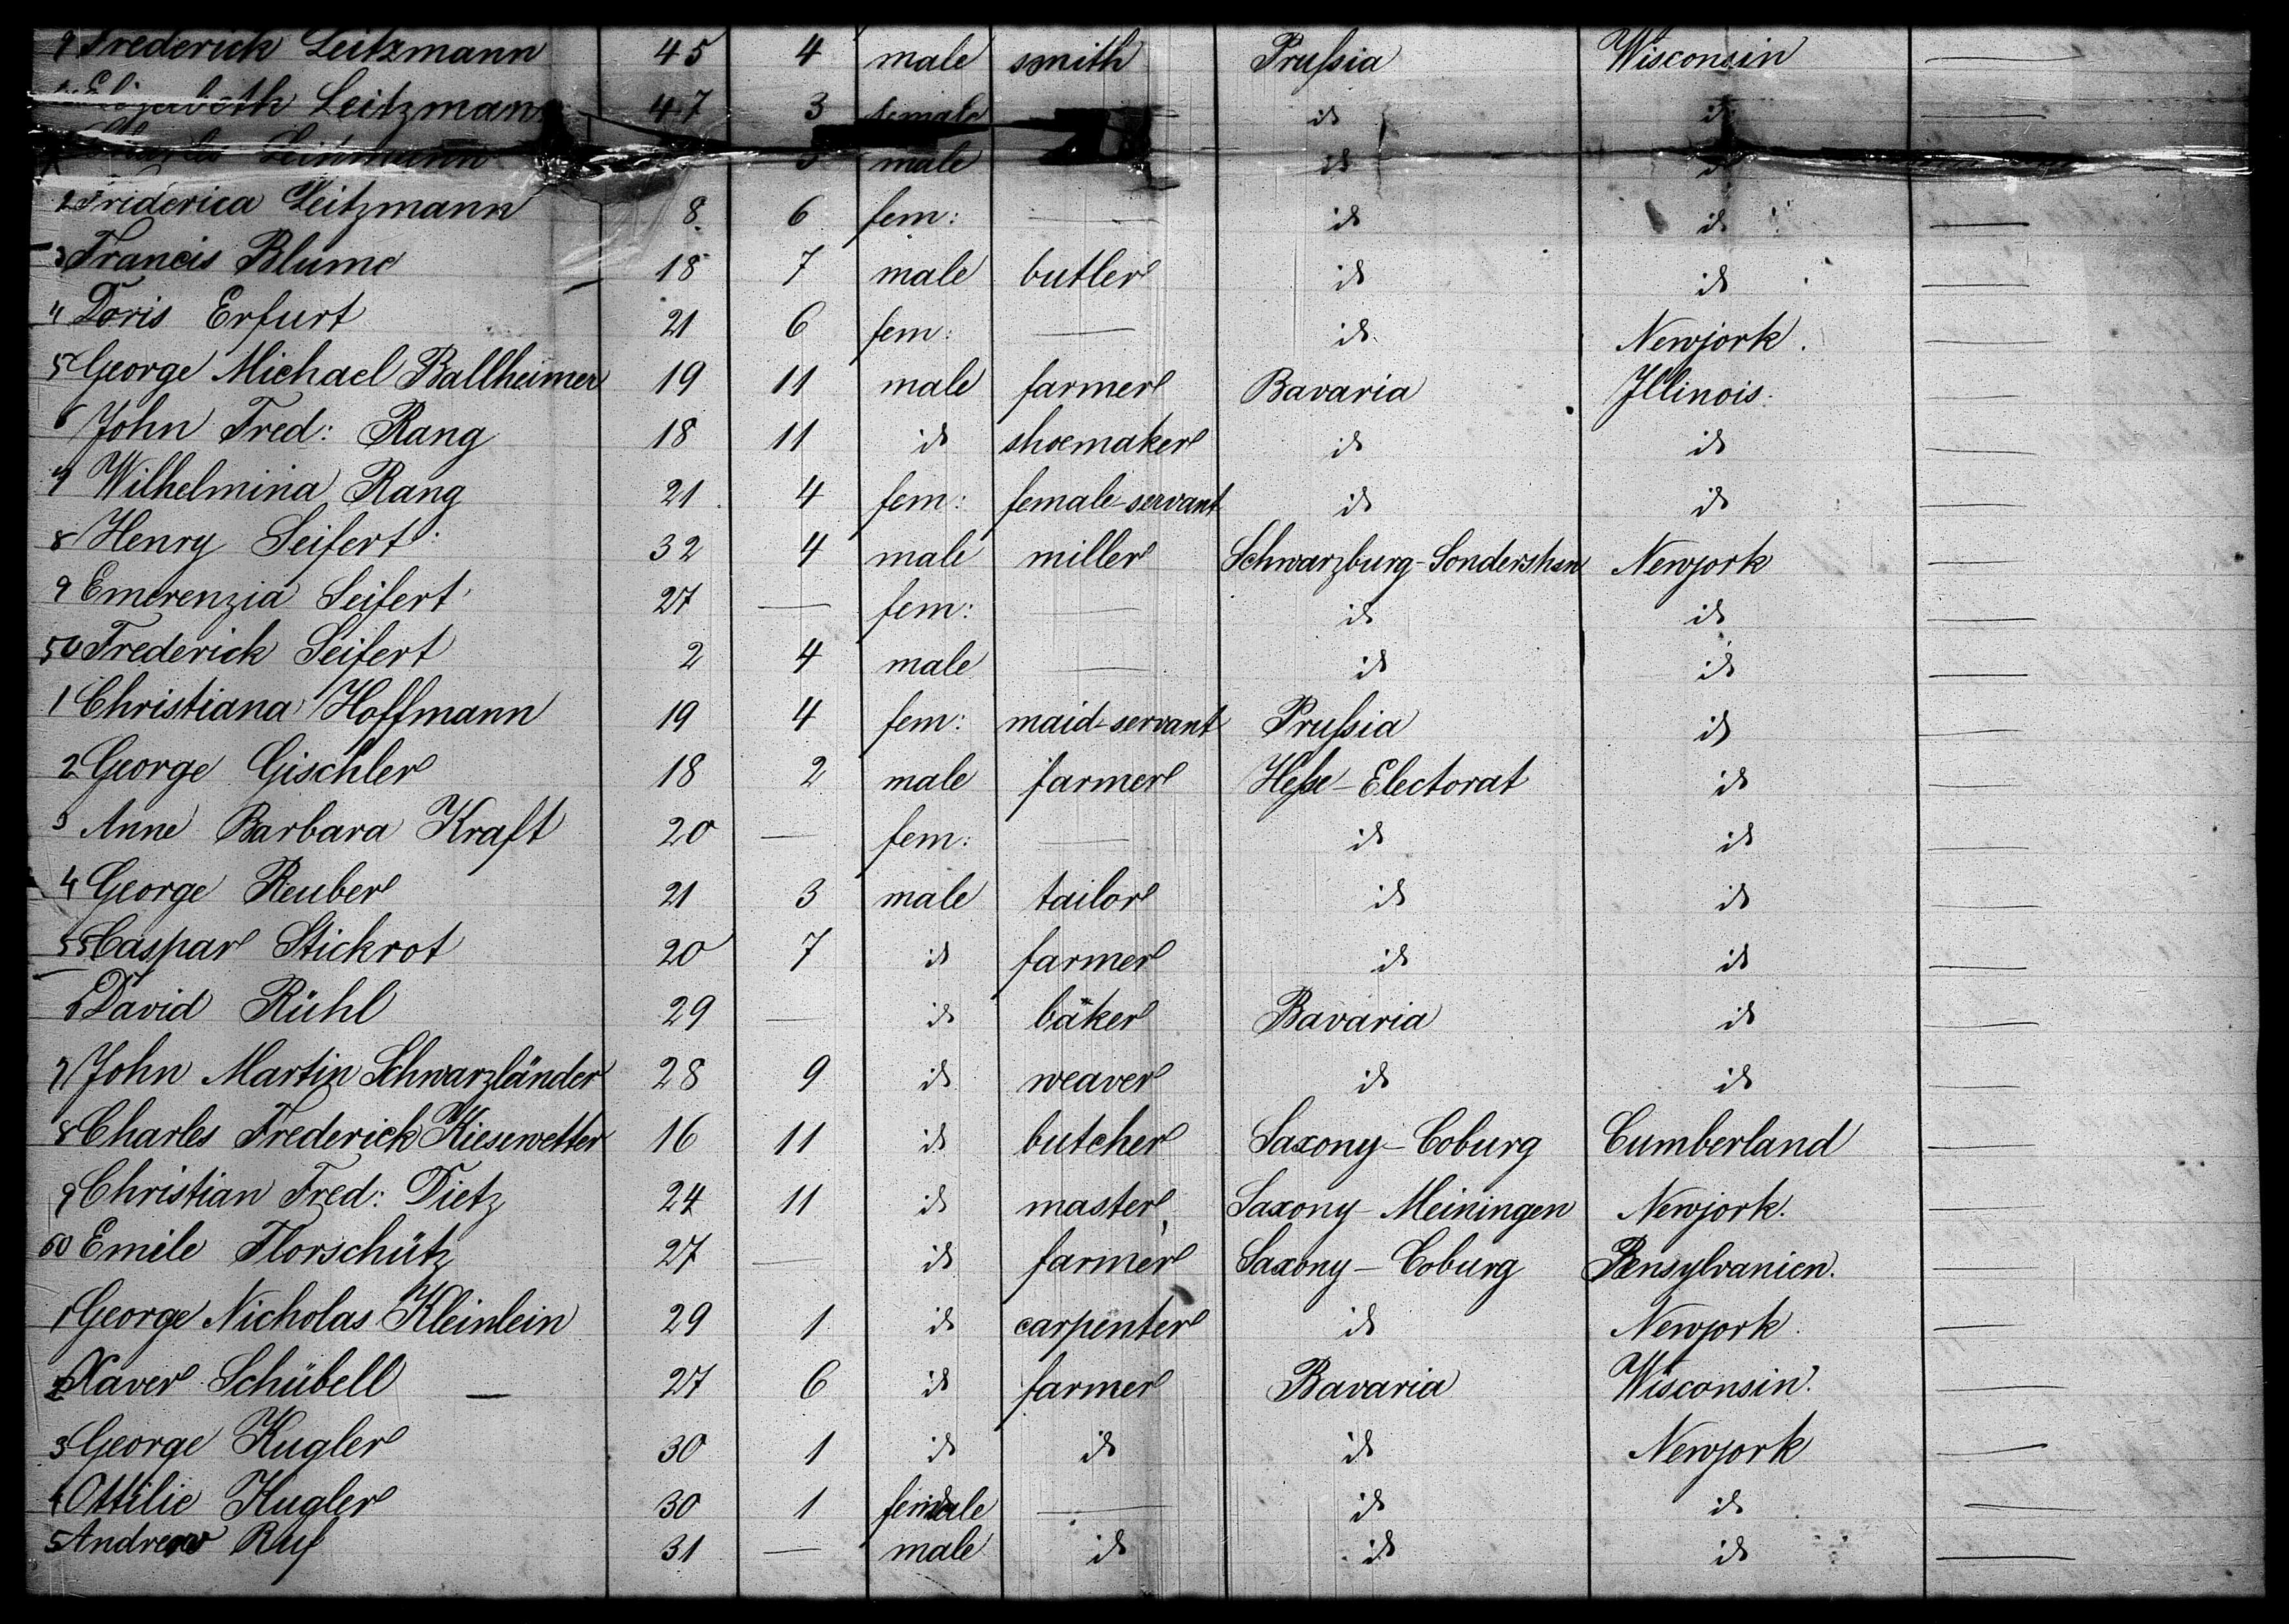 9 Frederick Leitzmann 45 4 male smith Prussia Wisconsin —
Elizabeth Leitzmann 47 3 female id id —
Charles Leitzmann 3 male id id
2 Friderica Leitzmann 8 6 fem: — id id —
3 Francis Blume 18 7 male butler id id —
4 Doris Erfurt 21 6 fem: — id Newjork. —
5 George Michael Ballheimer 19 11 male farmer Bavaria Illinois. —
6 John Fred: Rang 18 11 id shoemaker id id —
7 Wilhelmina Rang 21 4 fem: female-servant id id —
8 Henry Seifert 32 4 male miller Schwarzburg-Sondershsn Newjork —
9 Emerenzia Seifert 27 — fem: — id id —
50 Frederick Seifert 2 4 male — id id —
1 Christiana Hoffmann 19 4 fem: maid-servant Prussia id —
2 George Gischler 18 2 male farmer Hesse-Electorat id —
3 Anne Barbara Kraft 20 — fem: — id id —
4 George Reuber 21 3 male tailor id id —
55 Caspar Stickrot 20 7 id farmer id id —
6 David Rühl 29 — id bäker Bavaria id —
7 John Martin Schwarzländer 28 9 id weaver id id —
8 Charles Frederick Kiesewetter 16 11 id butcher Saxony-Coburg Cumberland —
9 Christian Fred: Dietz 24 11 id master Saxony-Meiningen Newjork. —
60 Emile Florschütz 27 — id farmer Saxony-Coburg Pensylvanien. —
1 George Nicholas Kleinlein 29 1 id carpenter id Newjork. —
2 Xaver Schübell — 27 6 id farmer Bavaria Wisconsin. —
3 George Kugler 30 1 id id id Newjork —
4 Ottilie Kugler 30 1 female — id id —
5 Andrew Ruf 31 — male id id id —